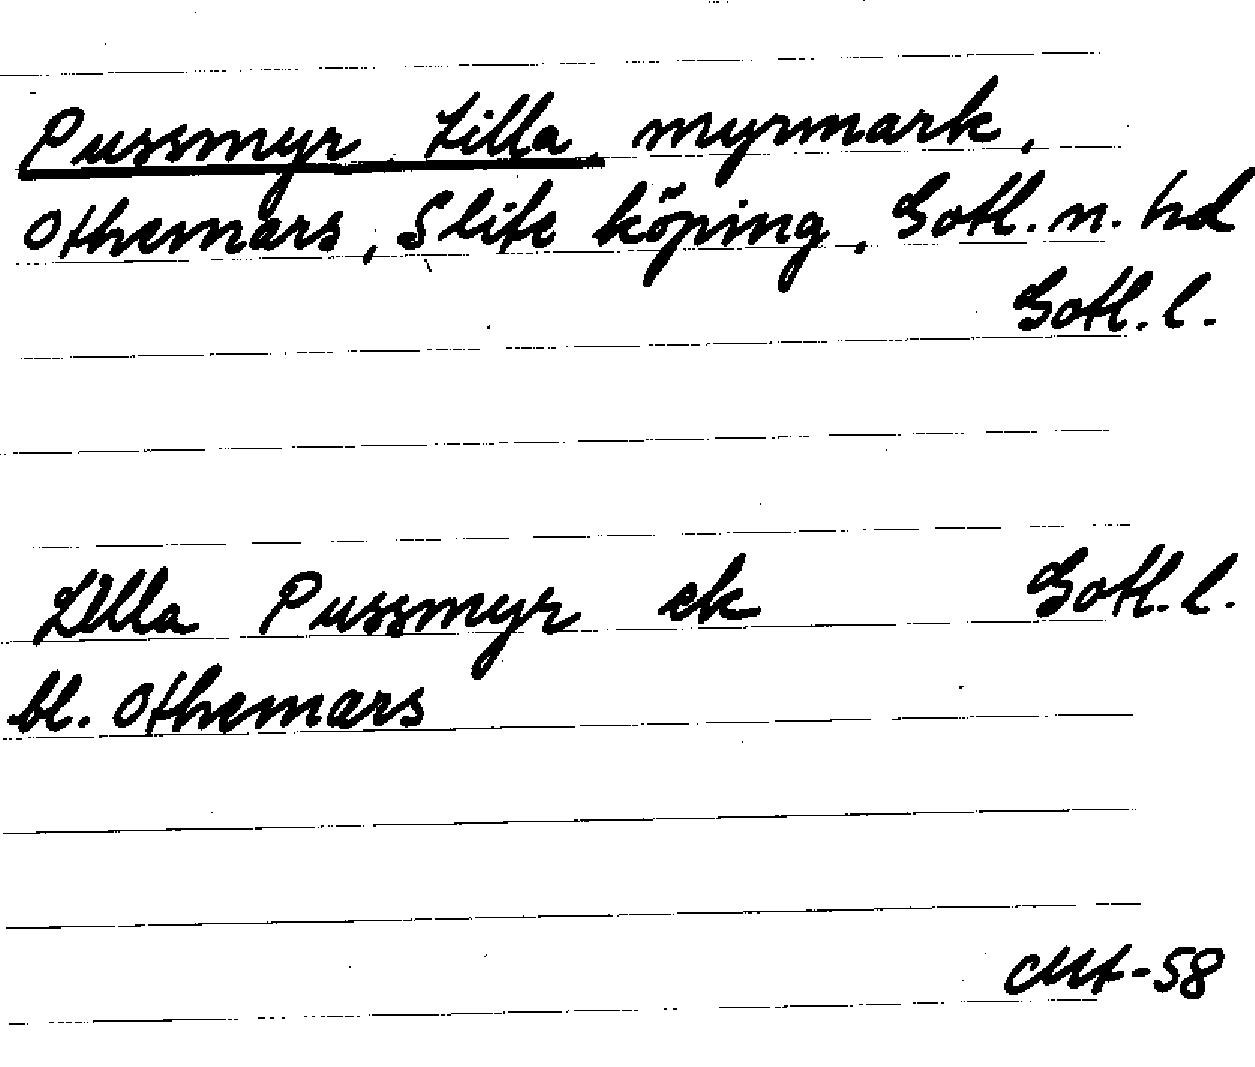 Pussmyr, Lilla, myrmark,
Othemars, Slite köping, Gotl. n. hd
Gotl. l.
Lilla Pussmyr ek Gotl. l.
bl. Othemars
-58